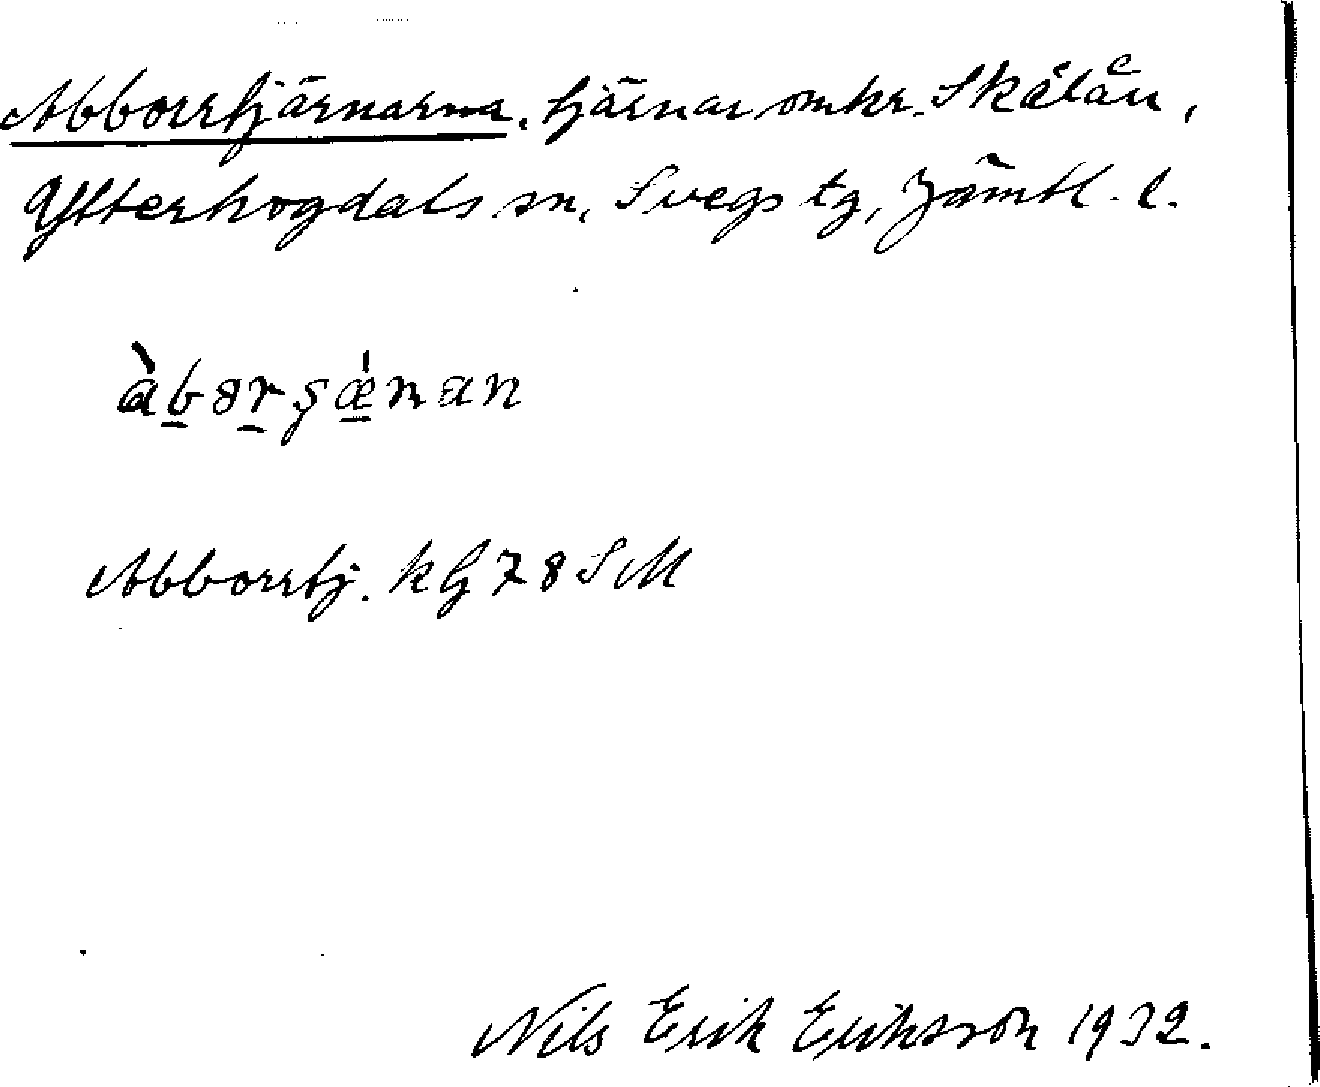 Abborrtjärnarna, tjärnar omkr. Skålån,
Ytterhogdals sn, Svegs tg, Jämtl. l.
àbərʂǽnan
Abborrtj. kG 78 SM
Nils Erik Eriksson 1932.